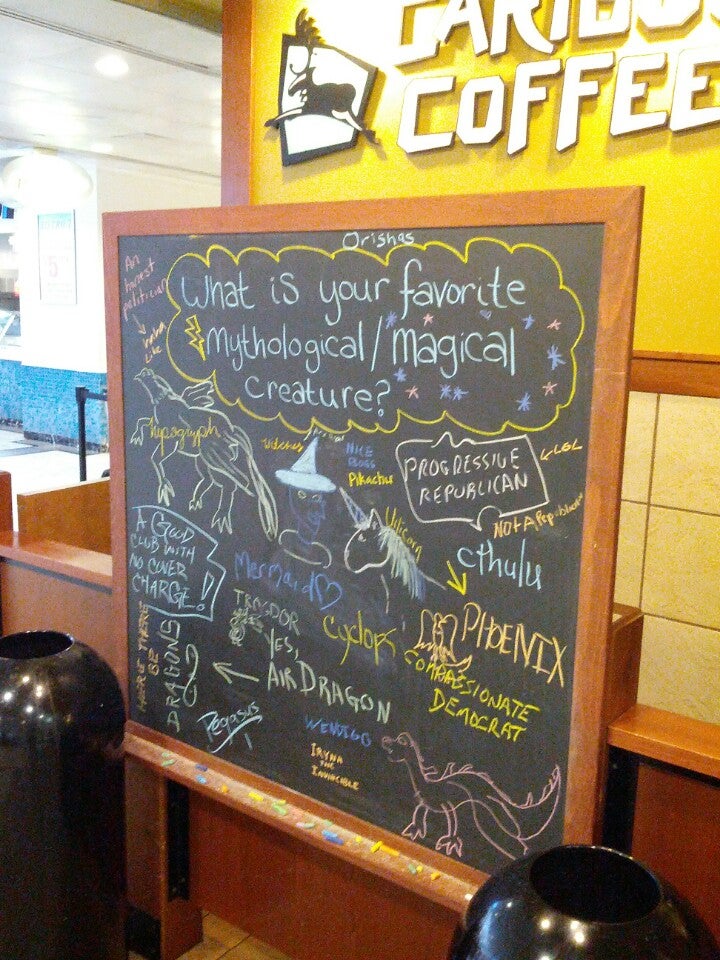 CARIBOU
COFFEE
Orishas
What is your favorite
Mythological/Magical
creature?
An
honest
politician
hypogryph
Witches
NICE
BOSS
Pikachus
PROGRESSIVE
REPUBLICAN
LOL
NOT A Republican
Unicorn
cthulu
A GOOD
CLUB WITH
NO COVER
CHARGE!
Mermaid
TROGDOR
YES,
AIR DRAGON
Cyclops
PHOENIX
COMPASSIONATE
DEMOCRAT
HERE THERE
BE
DRAGONS
Pegasus
WENDIGO
IRYNA
THE
INVINCIBLE